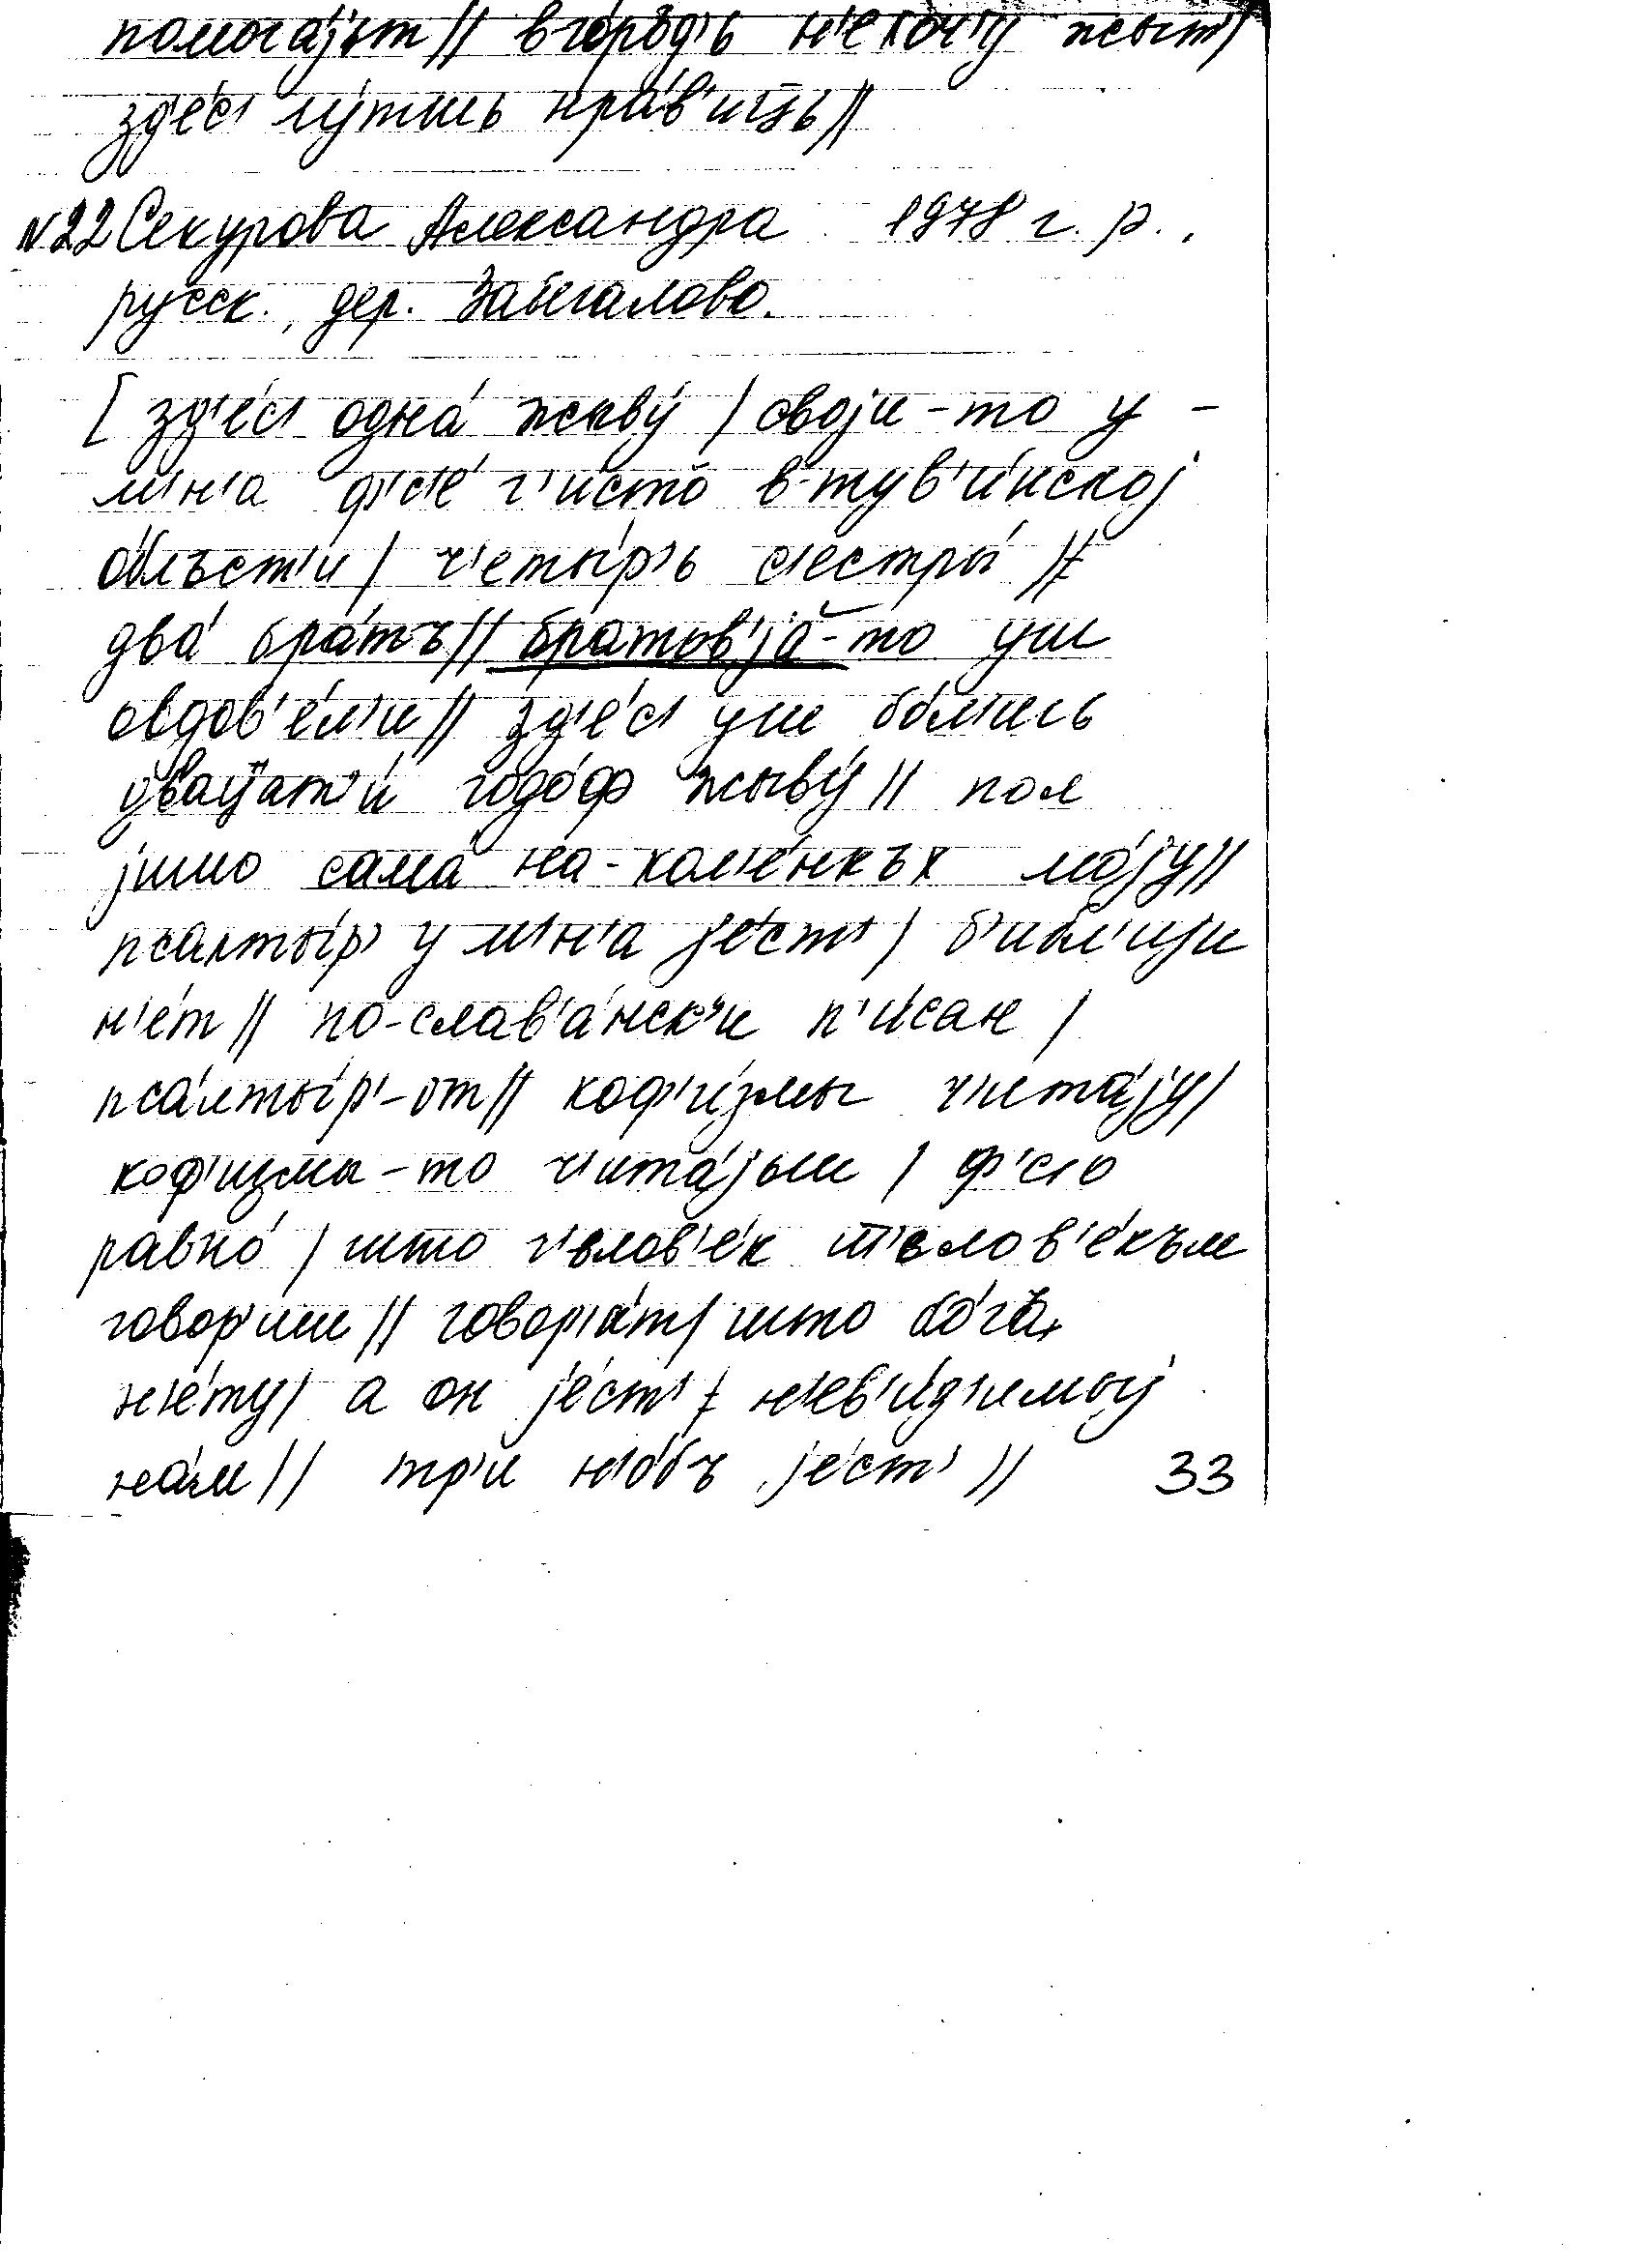 помога́јьт // в го́ръд'ь н'е хоч'у жыт' /
зд'е́с' лу́тшь нра́в'иццъ //
№22 Секурова Александра 1978 г. р.,
русск., дер. Забегалово.
[ зд'е́с' одна́ жыву́ / своји-то у -
м'н'а ф'с'е́ ч'и́сто в-тув'и́нској
о́блъст'и / ч'еты́р'ь с'естры́ //
два́ бра́тъ // братов'ја́-то уш
овдов'е́л'и // зд'е́с' уш бо́л'шь
дваццат'и́ годо́ф жыву́ // пол
јишшо сама́ на-кол'е́нкъх мо́ју //
псалты́р' у м'н'а је́ст' / б'ибл'ији
н'е́т // по-слав'а́нск'и п'и́сан /
пса́лты́р'-от // коф'и́змы ч'ита́ју /
коф'измы-то ч'ита́јьш / ф'с'о
равно́ / што ч'ьлов'е́к с ч'ьлов'е́към
говор'иш // говор'а́т / што бо́га
н'е́ту / а он је́ст' / н'ев'и́д'имыј
на́м // тр'и н'о́бъ је́ст' // 33